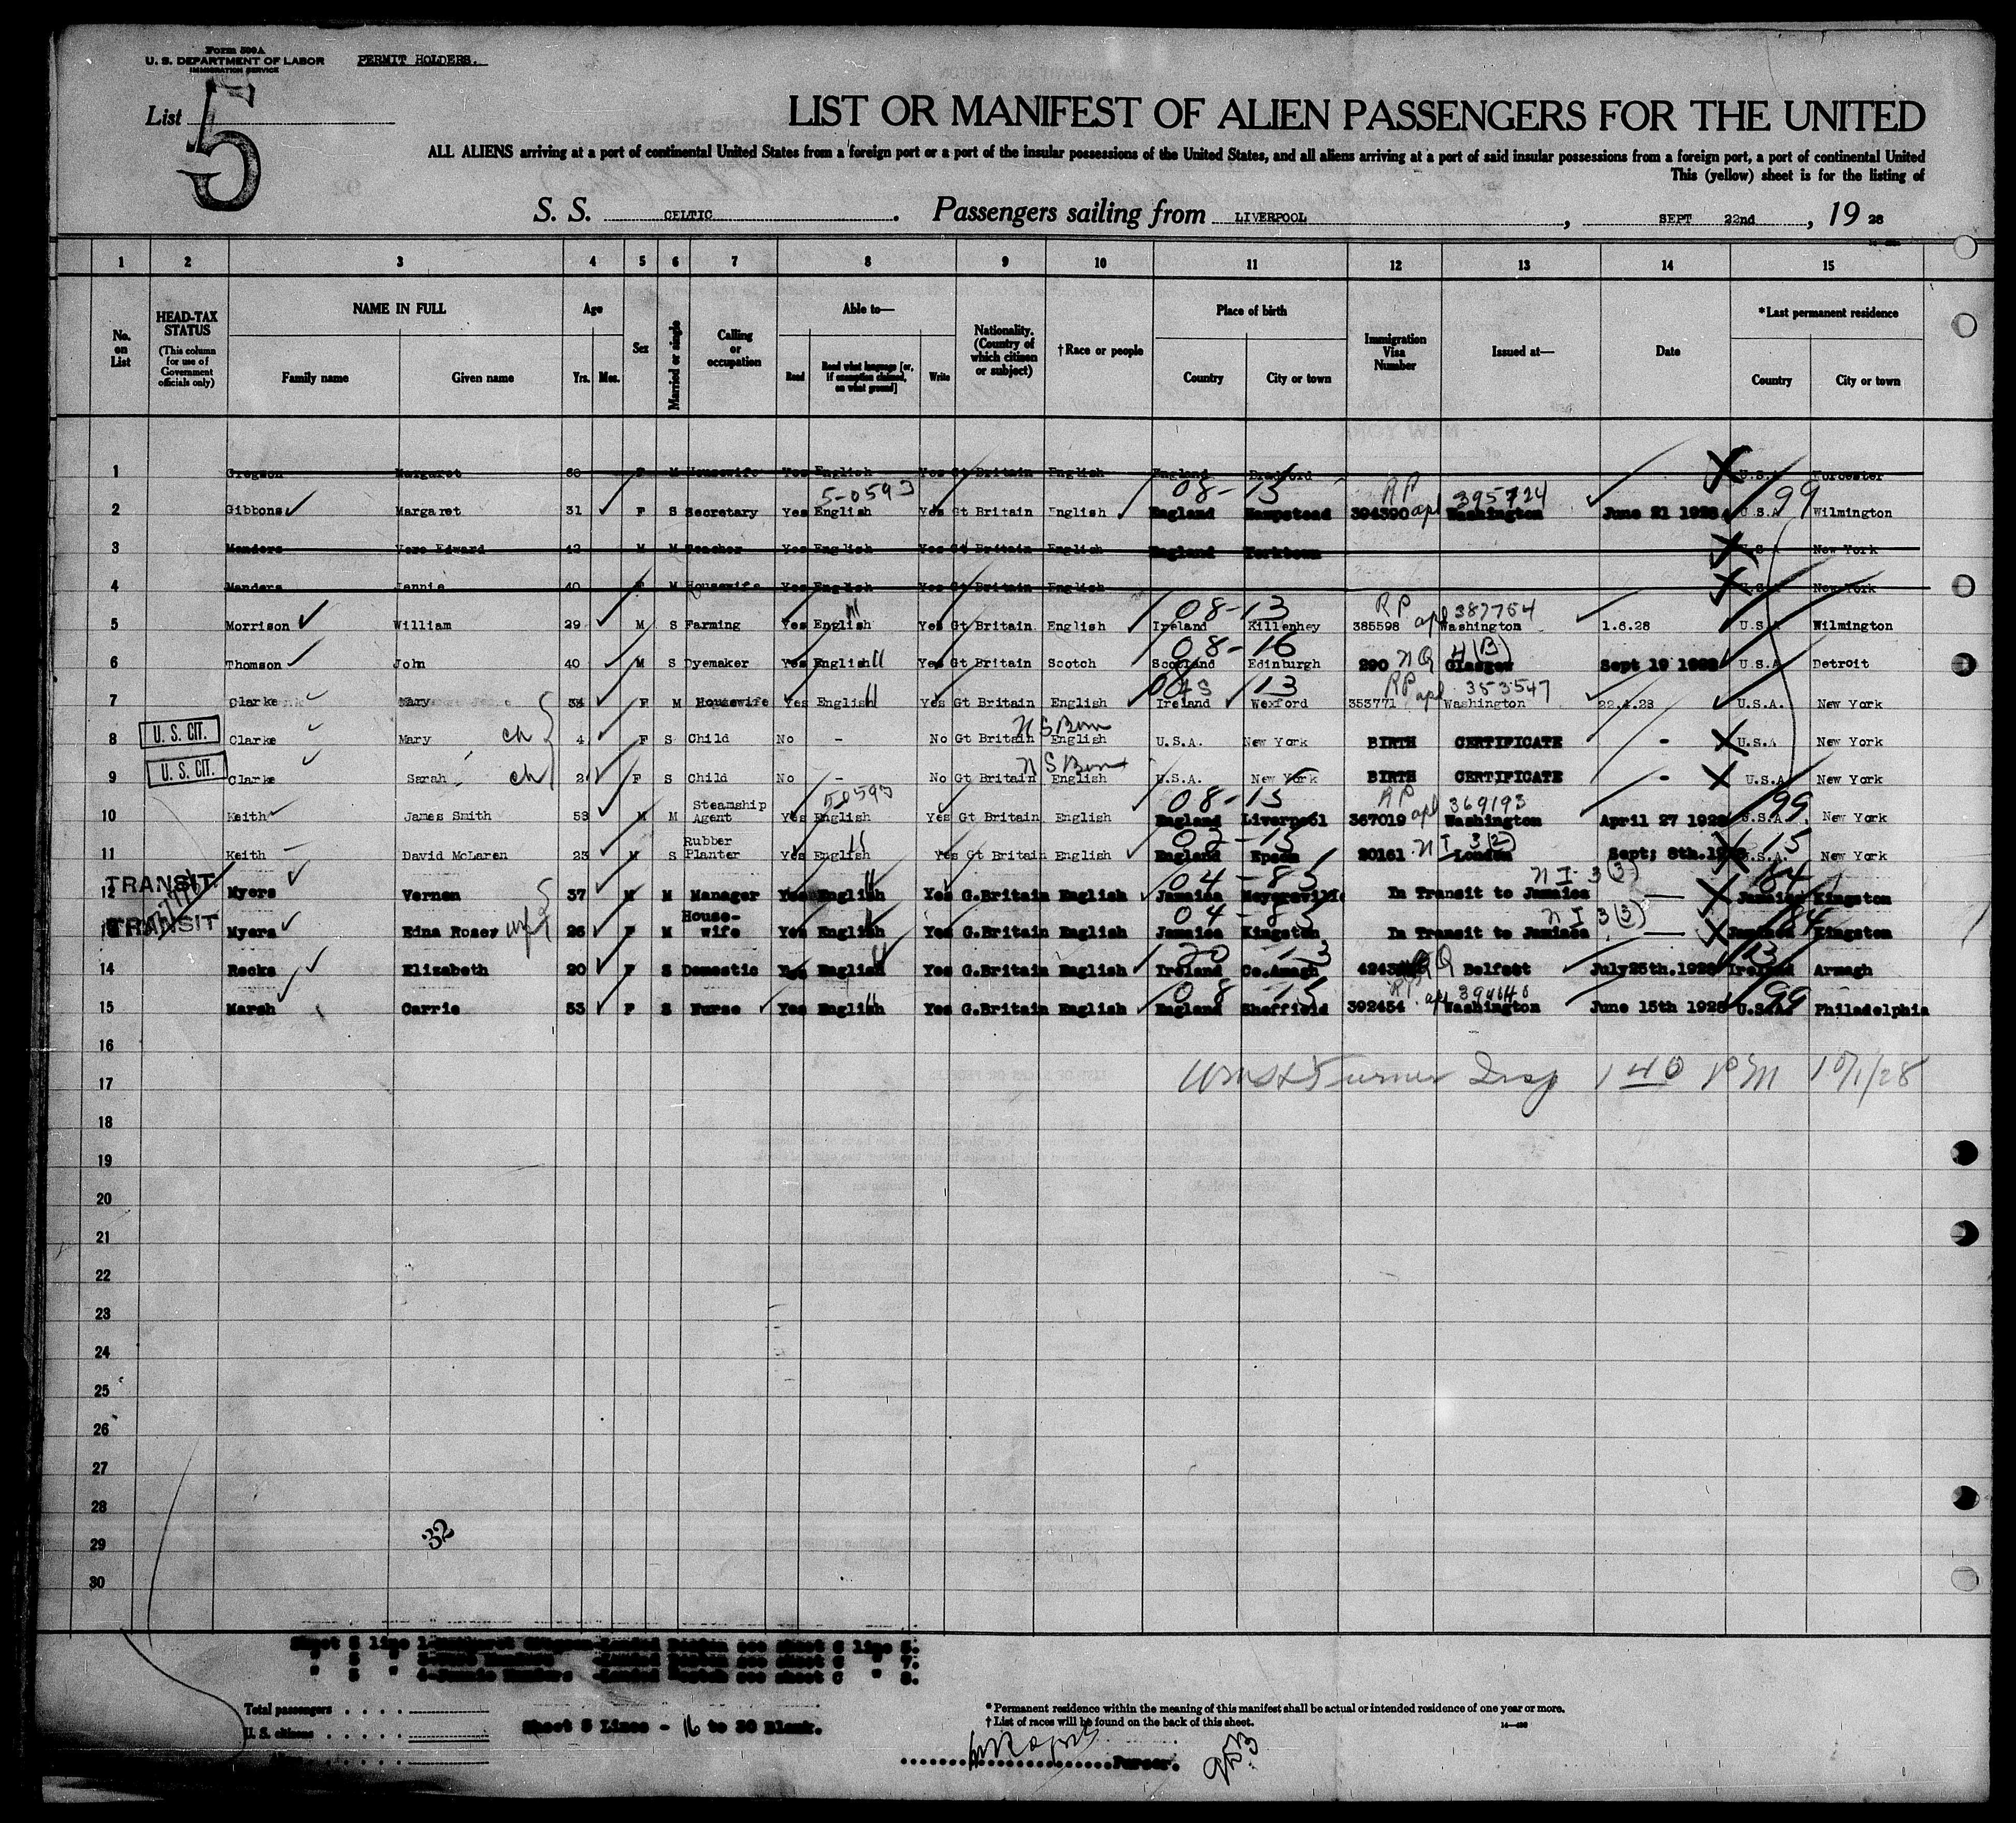 Form 500A
U. S. DEPARTMENT OF LABOR
IMMIGRATION SERVICE
PERMIT HOLDERS.
List 5
LIST OR MANIFEST OF ALIEN PASSENGERS FOR THE UNITED
ALL ALIENS arriving at a port of continental United States from a foreign port or a port of the insular possessions of the United States, and all aliens arriving at a port of said insular possessions from a foreign port, a port of continental United
This (yellow) sheet is for the listing of
S. S. CELTIC. Passengers sailing from LIVERPOOL, SEPT 22nd, 19 28
1 2 3 4 5 6 7 8 9 10 11 12 13 14 15
No. on List
HEAD-TAX STATUS (This column for use of Government officials only)
NAME IN FULL
Family name Given name
Age
Yrs. Mos.
Sex
Married or single
Calling or occupation
Able to—
Read Read what language [or, if exemption claimed, on what ground] Write
Nationality. (Country of which citizen or subject)
†Race or people
Place of birth
Country City or town
Immigration Visa Number
Issued at—
Date
*Last permanent residence
Country City or town
1 Gregson Margaret 60 F M Housewife Yes English Yes Gt Britain English England Bradford U.S.A Worcester
5-0593 08-13 RP 395724 99
2 Gibbons Margaret 31 F S Secretary Yes English Yes Gt Britain English England Hampstead 394390 apl Washington June 21 1928 U.S.A Wilmington
3 Manders Vere Edward 42 M M Teacher Yes English Yes Gt Britain English England Yorktown U.S.A New York
4 Manders Jennie 40 F M Housewife Yes English Yes Gt Britain English U.S.A New York
08-13 RP 387764
5 Morrison William 29 M S Farming Yes English Yes Gt Britain English Ireland Killenhey 385598 apl Washington 1.6.28 U.S.A Wilmington
08-16 4(B)
6 Thomson John 40 M S Dyemaker Yes English Yes Gt Britain Scotch Scotland Edinburgh 290 NQ Glasgow Sept 19 1928 U.S.A Detroit
13 RP 353547
7 Clarke Mary 34 F M Housewife Yes English Yes Gt Britain English Ireland Wexford 353771 apl Washington 22.4.28 U.S.A. New York
U. S. CIT.
8 Clarke Mary ch 4 F S Child No - No Gt Britain English U.S.A. New York BIRTH CERTIFICATE - U.S.A New York
U. S. CIT.
9 Clarke Sarah ch 2 F S Child No - No Gt Britain English U.S.A. New York BIRTH CERTIFICATE - U.S.A New York
50593 08-13 RP 369193 99
10 Keith James Smith 53 M M Steamship Agent Yes English Yes Gt Britain English England Liverpool 367019 apl Washington April 27 1928 U.S.A. New York
02-15 NI 3(2) 15
11 Keith David McLaren 23 M S Rubber Planter Yes English Yes Gt Britain English England Epsom 20161 London Sept; 8th. U.S.A. New York
TRANSIT
04-85 NI 3(3) 84
12 Myers Vernon 37 M M Manager Yes English Yes G.Britain English Jamaica In Transit to Jamaica Jamaica Kingston
TRANSIT
04-85 NI 3(3) 84
Myers Edna Rose wf 26 F M House-wife Yes English Yes G.Britain English Jamaica Kingston In Transit to Jamaica Jamaica Kingston
20 13
14 Rocks Elizabeth 20 F S Domestic Yes English Yes G.Britain English Ireland Co.Amagh Belfast July25th.1928 Ireland Armagh
08 15 RP 99
15 Marsh Carrie 53 F S Nurse Yes English Yes G.Britain English England Sheffield 392454 apl Washington June 15th 1928 U.S.A. Philadelphia
16
17 Turner Insp 1 40 PM 10/1/28
18
19
20
21
22
23
24
25
26
27
28
29
30
32
Sheet 5 line 1- Landed Boston see sheet C line 5.
" 5 " 3- -Landed Boston see sheet C " 7.
" 5 " 4-Jennie Manders -Landed Boston see sheet C " 8.
Total passengers
U. S. citizens
Sheet 5 Lines - 16 to 30 Blank.
* Permanent residence within the meaning of this manifest shall be actual or intended residence of one year or more.
† List of races will be found on the back of this sheet.
Purser.